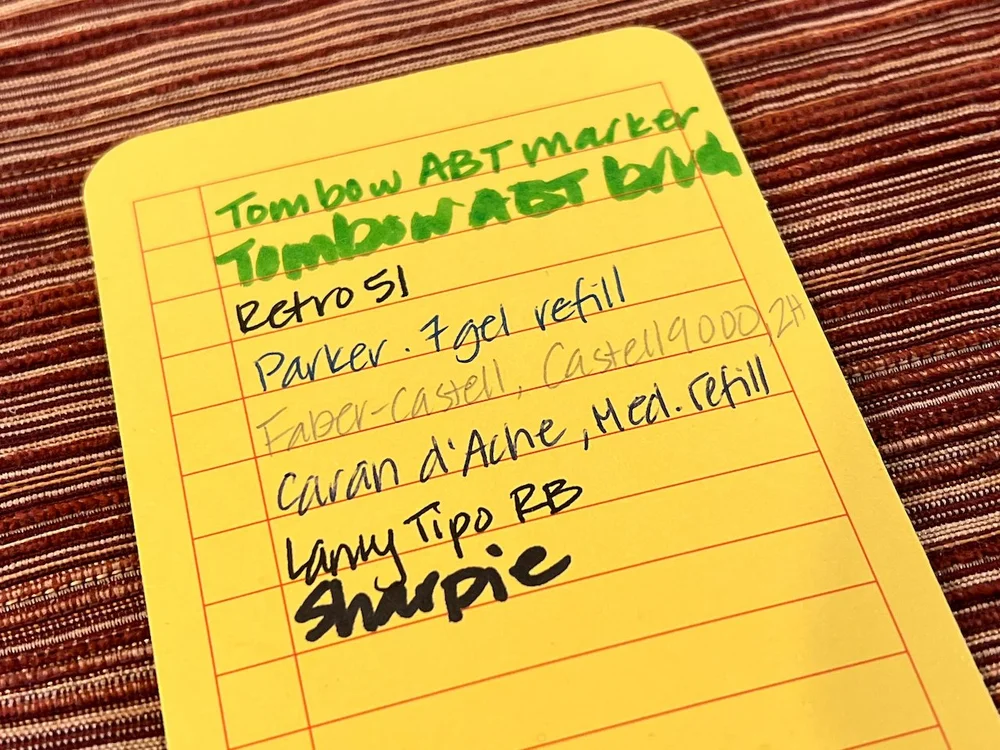 Tombow ABT marker
Tombow ABT brush
Retro 51
Parker .7 gel refill
Faber-Castell, Castell 9000, 2H
Caran d'Ache, Med. refill
Lamy Tipo RB
Sharpie